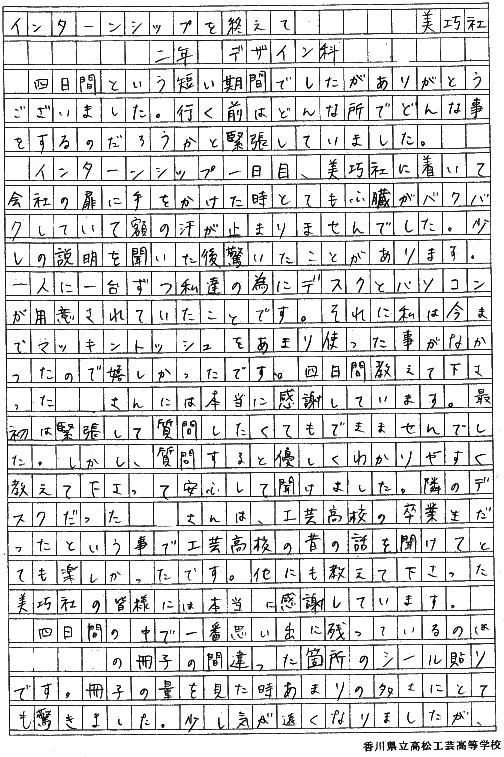 インターンシップを終えて 美巧社
二年 デザイン科
四日間という短い期間でしたがありがとう
ございました。行く前はどんな所でどんな事
をするのだろうかと緊張していました。
インターンシップ一日目、美巧社に着いて
会社の扉に手をかけた時とても心臓がバクバ
クしていて額の汗が止まりませんでした。少
しの説明を聞いた後驚いたことがあります。
一人に一台ずつ私達の為にデスクとパソコン
が用意されていたことです。それに私は今ま
でマッキントッシュをあまり使った事がなか
ったので嬉しかったです。四日間教えて下さ
った さんには本当に感謝しています。最
初は緊張して質問したくてもできませんでし
た。しかし、質問すると優しくわかりやすく
教えて下さって安心して聞けました。隣のデ
スクだった さんは、工芸高校の卒業生だ
ったという事で工芸高校の昔の話を聞けてと
ても楽しかったです。他にも教えて下さった
美巧社の皆様には本当に感謝しています。
四日間の中で一番思い出に残っているのは
の冊子の間違った箇所のシール貼り
です。冊子の量を見た時あまりの多さにとて
も驚きました。少し気が遠くなりましたが、
香川県立高松工芸高等学校